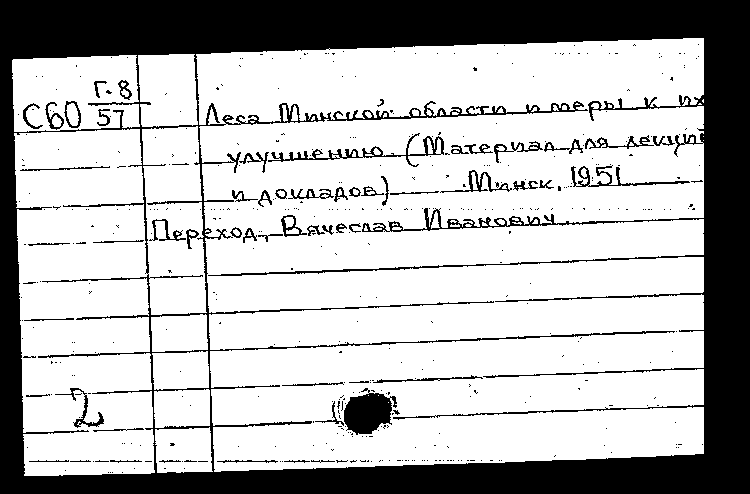 Г. 8
С60 57
Леса Минской области и меры к их
улучшению. (Материал для лекций
и докладов) Минск, 1951
Переход, Вячеслав Иванович.
2